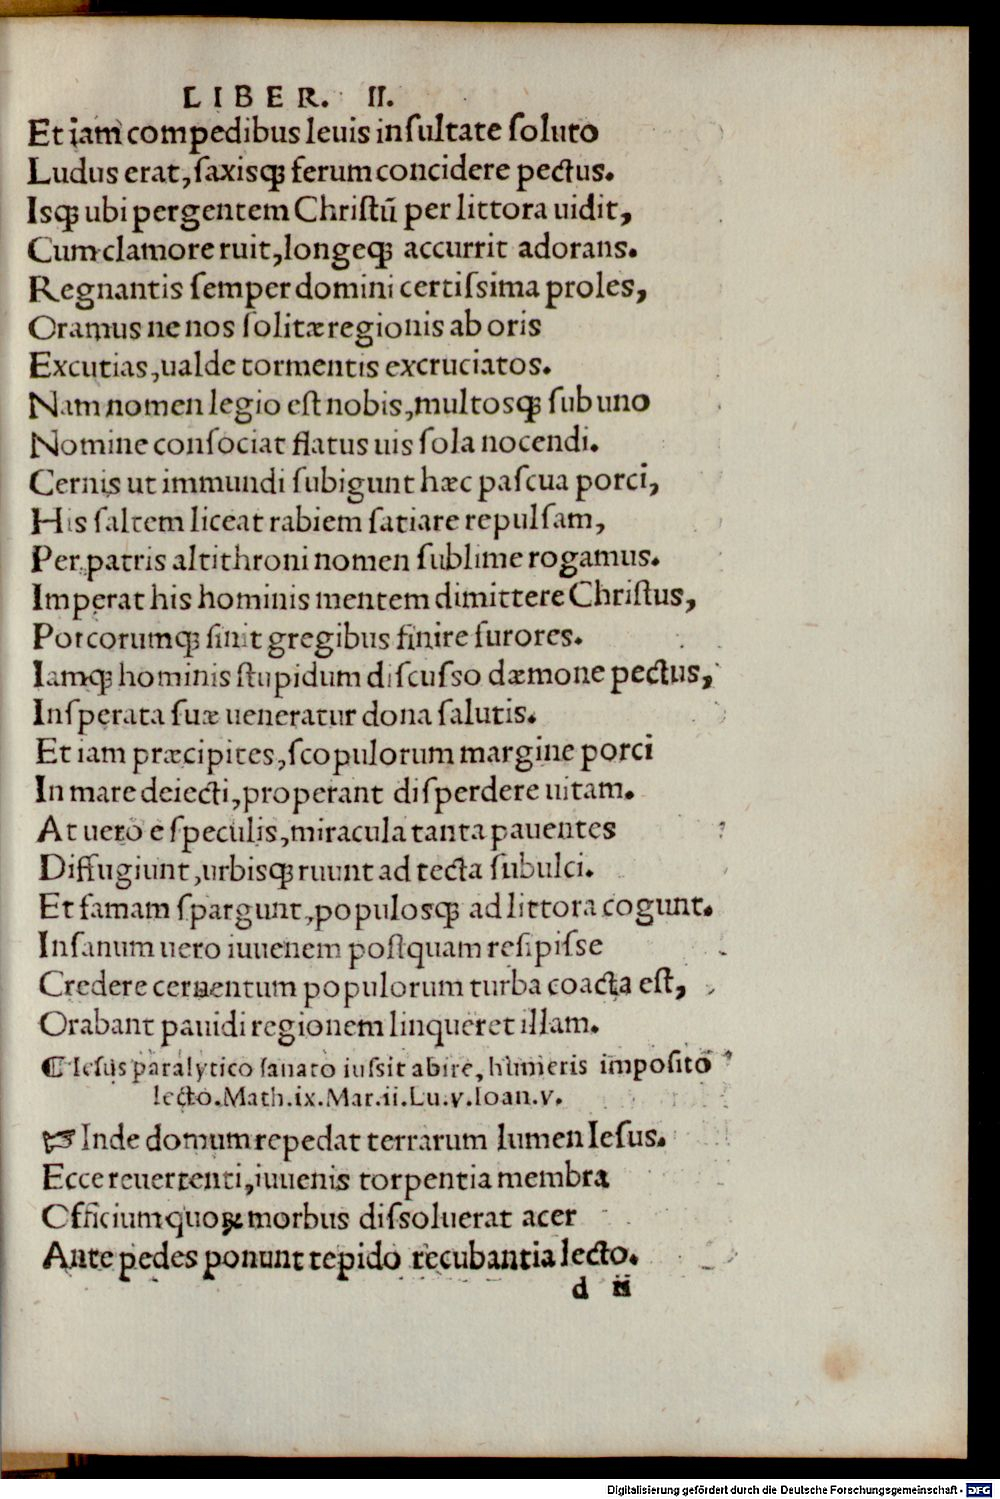 LIBER. II.
Et iam compedibus leuis insultate soluto
Ludus erat, saxisqꝫ ferum concidere pectus.
Isqꝫ ubi pergentem Christū per littora uidit,
Cum clamore ruit, longeqꝫ accurrit adorans.
Regnantis semper domini certissima proles,
Oramus ne nos solitæ regionis ab oris
Excutias, ualde tormentis excruciatos.
Nam nomen legio est nobis, multosqꝫ sub uno
Nomine consociat flatus uis sola nocendi.
Cernis ut immundi subigunt hæc pascua porci,
His saltem liceat rabiem satiare repulsam,
Per patris altithroni nomen sublime rogamus.
Imperat his hominis mentem dimittere Christus,
Porcorumqꝫ sinit gregibus finire furores.
Iamqꝫ hominis stupidum discusso dæmone pectus,
Insperata suæ ueneratur dona salutis.
Et iam præcipites, scopulorum margine porci
In mare deiecti, properant disperdere uitam.
At uero e speculis, miracula tanta pauentes
Diffugiunt, urbisqꝫ ruunt ad tecta subulci.
Et famam spargunt, populosqꝫ ad littora cogunt.
Insanum uero iuuenem postquam resipisse
Credere cernentum populorum turba coacta est,
Orabant pauidi regionem linqueret illam.
¶ Iesus paralytico sanato iussit abire, humeris imposito
lecto. Math. ix. Mar. ii. Lu. v. Ioan. v.
☞ Inde domum repedat terrarum lumen Iesus.
Ecce reuertenti, iuuenis torpentia membra
Officium quoꝝ morbus dissoluerat acer
Ante pedes ponunt tepido recubantia lecto.
d ii
Digitalisierung gefördert durch die Deutsche Forschungsgemeinschaft - DFG